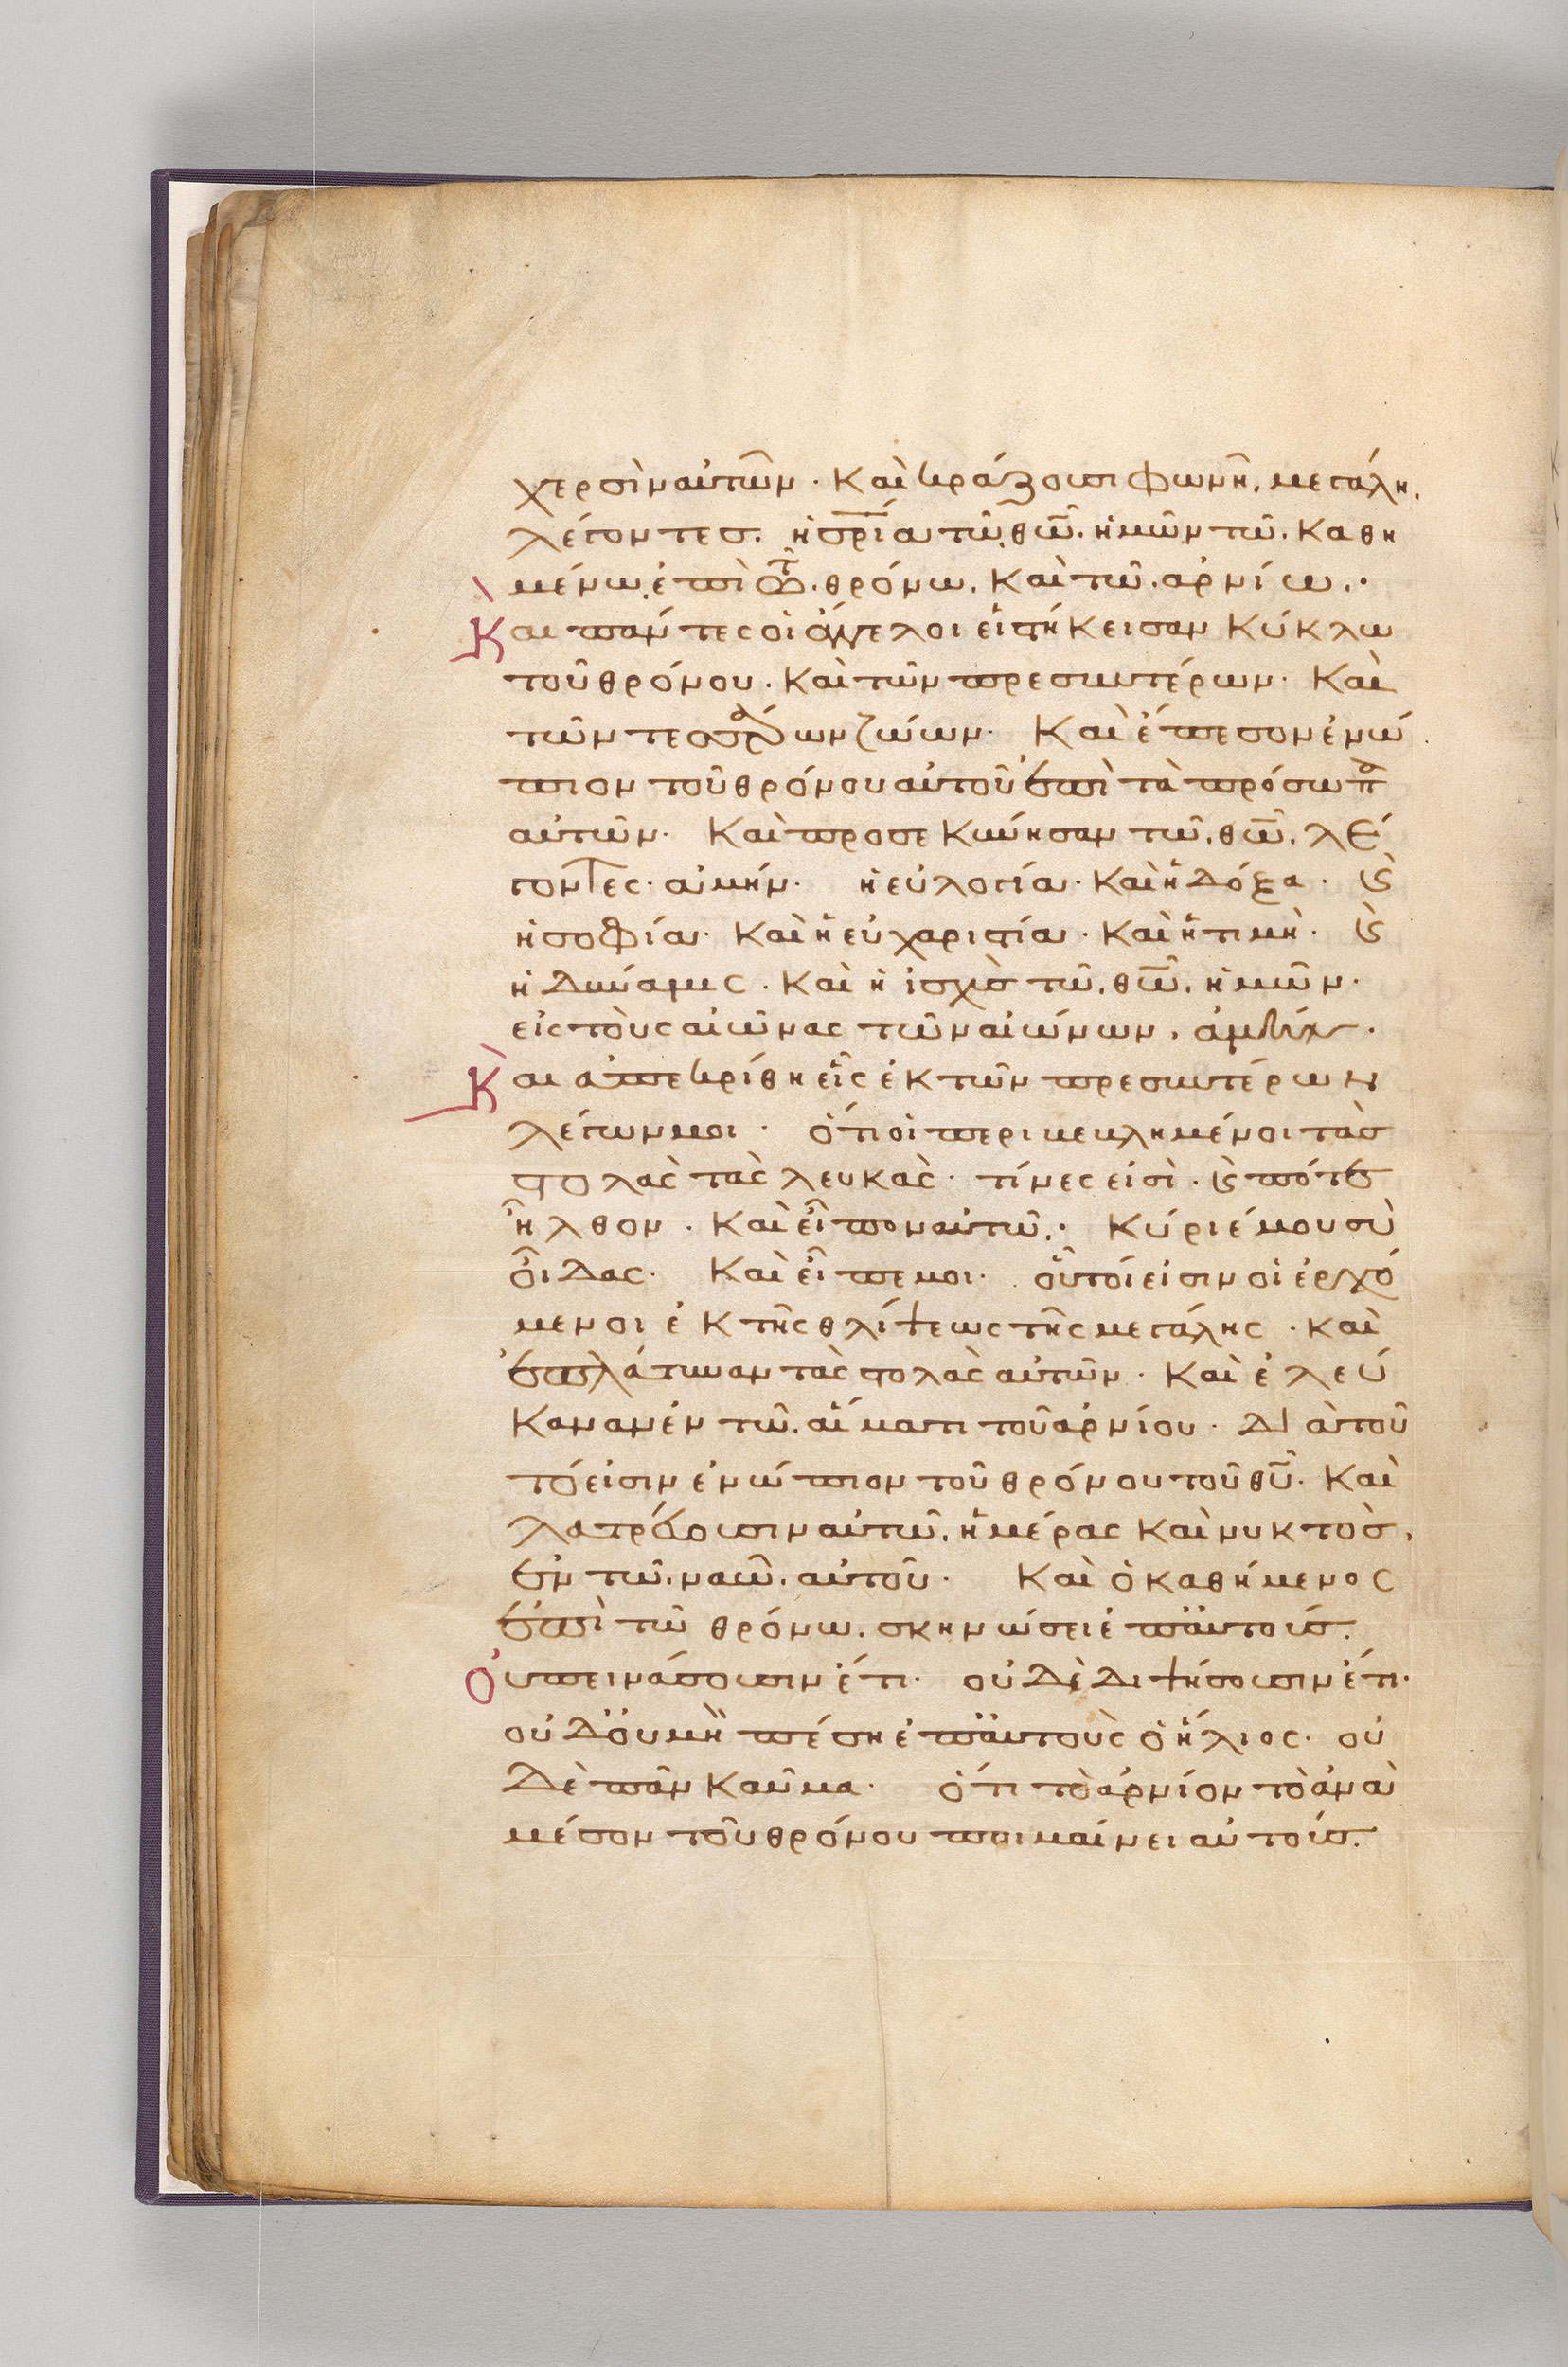 χερσὶν αὐτῶν · Καὶ κράζουσι φωνῆ, μεγάλη,
λέγοντες. ἡ σρία τῶ, θῶ, ἡμῶν τῶ, καθη
μένω, ἐπὶ τοῦ, θρόνω, Καὶ τῶ, ἀρνίω, ·
Και πάντες οἱ ἄγγελοι εἱστήκεισαν κύκλω
τοῦ θρόνου · Καὶ τῶν πρεσβυτέρων · Καὶ
τῶν τεσσάρων ζώων · Καὶ ἔπεσον ἐνώ
πιον τοῦ θρόνου αὐτοῦ ἐπὶ τὰ πρόσωπα
αὐτῶν · Καὶ προσεκύνησαν τῶ, θῶ, λέ
γοντες · ἀμήν · ἡ εὐλογία · Καὶ ἡ δόξα · ϗ
ἡ σοφία · Καὶ ἡ εὐχαριστία · Καὶ ἡ τιμὴ · ϗ
ἡ δύναμις · Καὶ ἡ ἰσχὺς τῶ, θῶ, ἡμῶν ·
εἰς τοὺς αἰῶνας τῶν αἰώνων, ἀμὴν ·
Καὶ ἀπεκρίθη εἷς ἐκ τῶν πρεσβυτέρων
λέγων μοι · ὅτι οἱ περικεκλημένοι τὰς
στολὰς τὰς λευκὰς · τίνες εἰσὶ · ϗ πόθε
ἦλθον · Καὶ εἶπον αὐτῶ, · Κύριέ μου σὺ
οἶδας · Καὶ εἶπε μοι · οὗτοί εἰσιν οἱ ἐρχό
μενοι ἐκ τῆς θλίψεως τῆς μεγάλης · καὶ
ἐπλάτυναν τὰς στολὰς αὐτῶν · Καὶ ἐλεύ
καναν ἐν τῶ, αἵματι τοῦ ἀρνίου · Διὰ τοῦ
τό εἰσιν ἐνώπιον τοῦ θρόνου τοῦ θῦ · Καὶ
λατρεύουσιν αὐτῶ, ἡμέρας Καὶ νυκτὸς,
ἐν τῶ, ναῶ, αὐτοῦ · Καὶ ὁ καθήμενος
ἐπὶ τῶ θρόνω, σκηνώσει ἐπ' αὐτοῖς.
Οὐ πεινάσουσιν ἔτι · οὐδὲ διψήσουσιν ἔτι ·
οὐδ' οὐ μὴ πέση ἐπ' αὐτοὺς ὁ ἥλιος · οὐ
δὲ πᾶν καῦμα · ὅτι τὸ ἀρνίον τὸ ἀνὰ
μέσον τοῦ θρόνου ποιμαίνει αὐτοῖς.